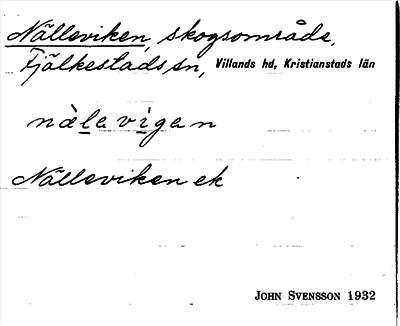 Nälleviken, skogsområde,
Fjälkestads sn, Villands hd, Kristianstads län
nàlevigen
Nälleviken ek
JOHN SVENSSON 1932